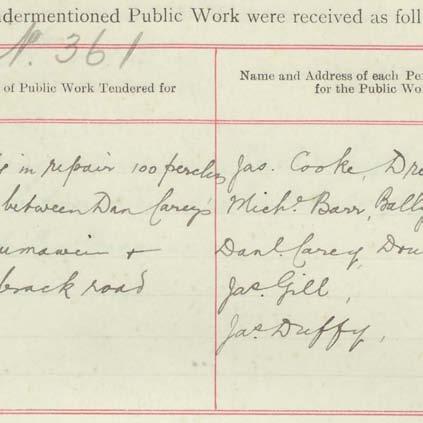 ndermentioned Public Work were received as foll
No. 361
of Public Work Tendered for
Name and Address of each Pe
for the Public Wo
in repair 100 perches
between Dan Carey's
+
road
Jas. Cooke, Dr
Michl. Barr, Bally
Danl. Carey, Dou
Jas. Gill,
Jas. Duffy,